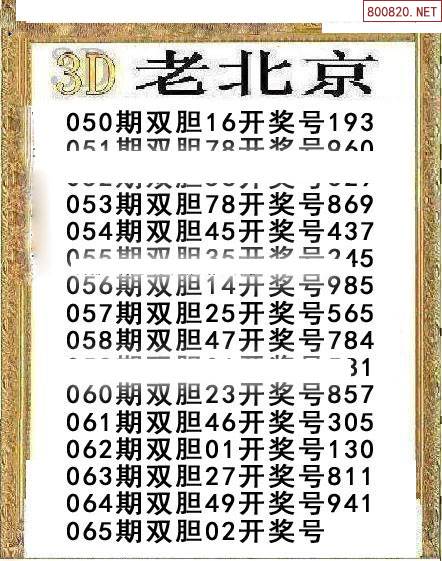 800820.NET
3D 老北京
050期双胆16开奖号193
051期双胆78开奖号960
053期双胆78开奖号869
054期双胆45开奖号437
055期双胆35开奖号245
056期双胆14开奖号985
057期双胆25开奖号565
058期双胆47开奖号784
060期双胆23开奖号857
061期双胆46开奖号305
062期双胆01开奖号130
063期双胆27开奖号811
064期双胆49开奖号941
065期双胆02开奖号